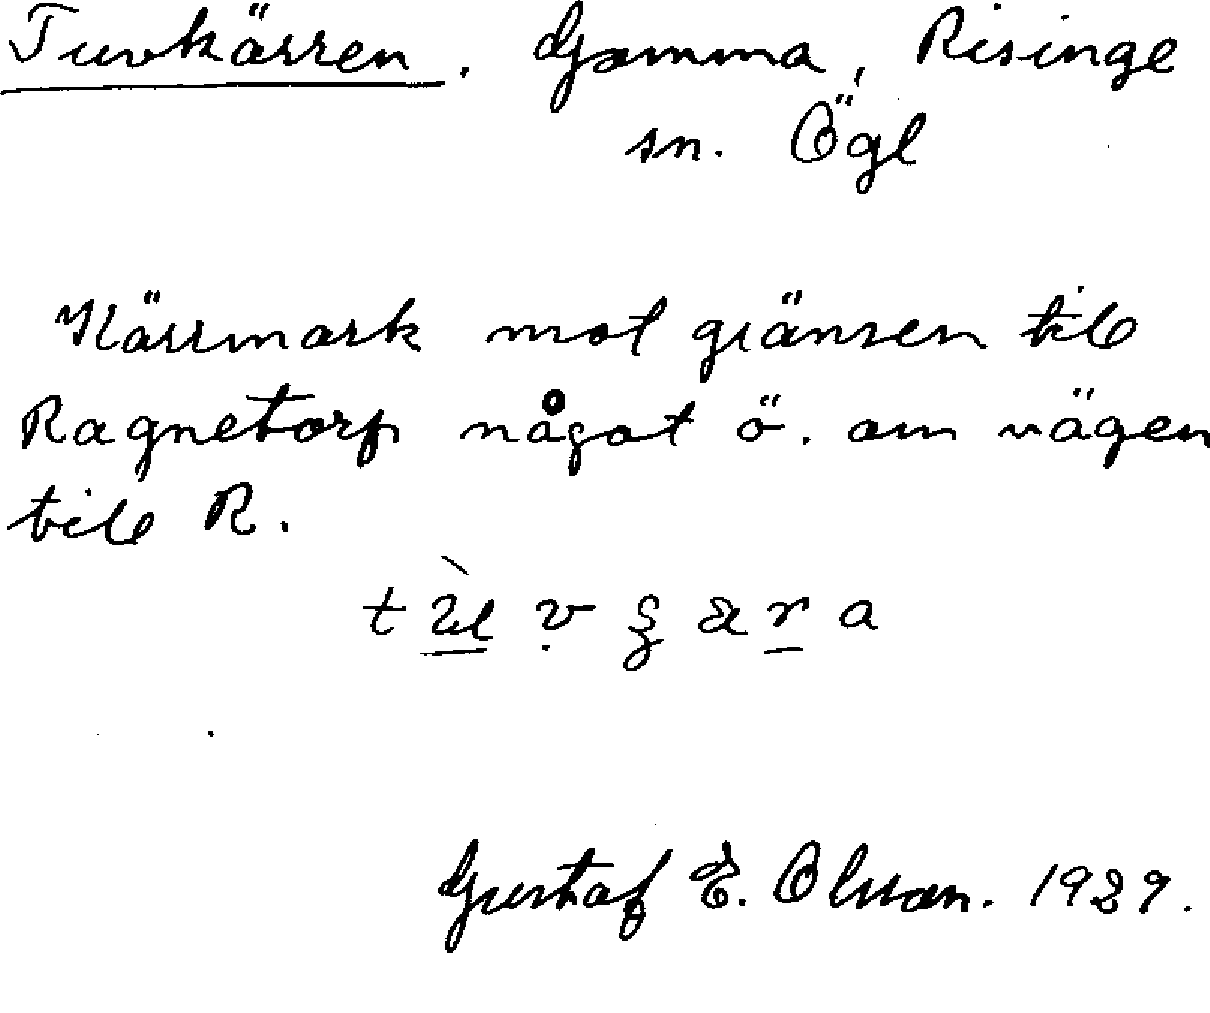 Tuvkärren. Gomma, Risinge
sn. Ögl
Kärrmark mot gränsen till
Ragnetorp något ö. om vägen
till R.
Gustaf E. Olsson. 1929.